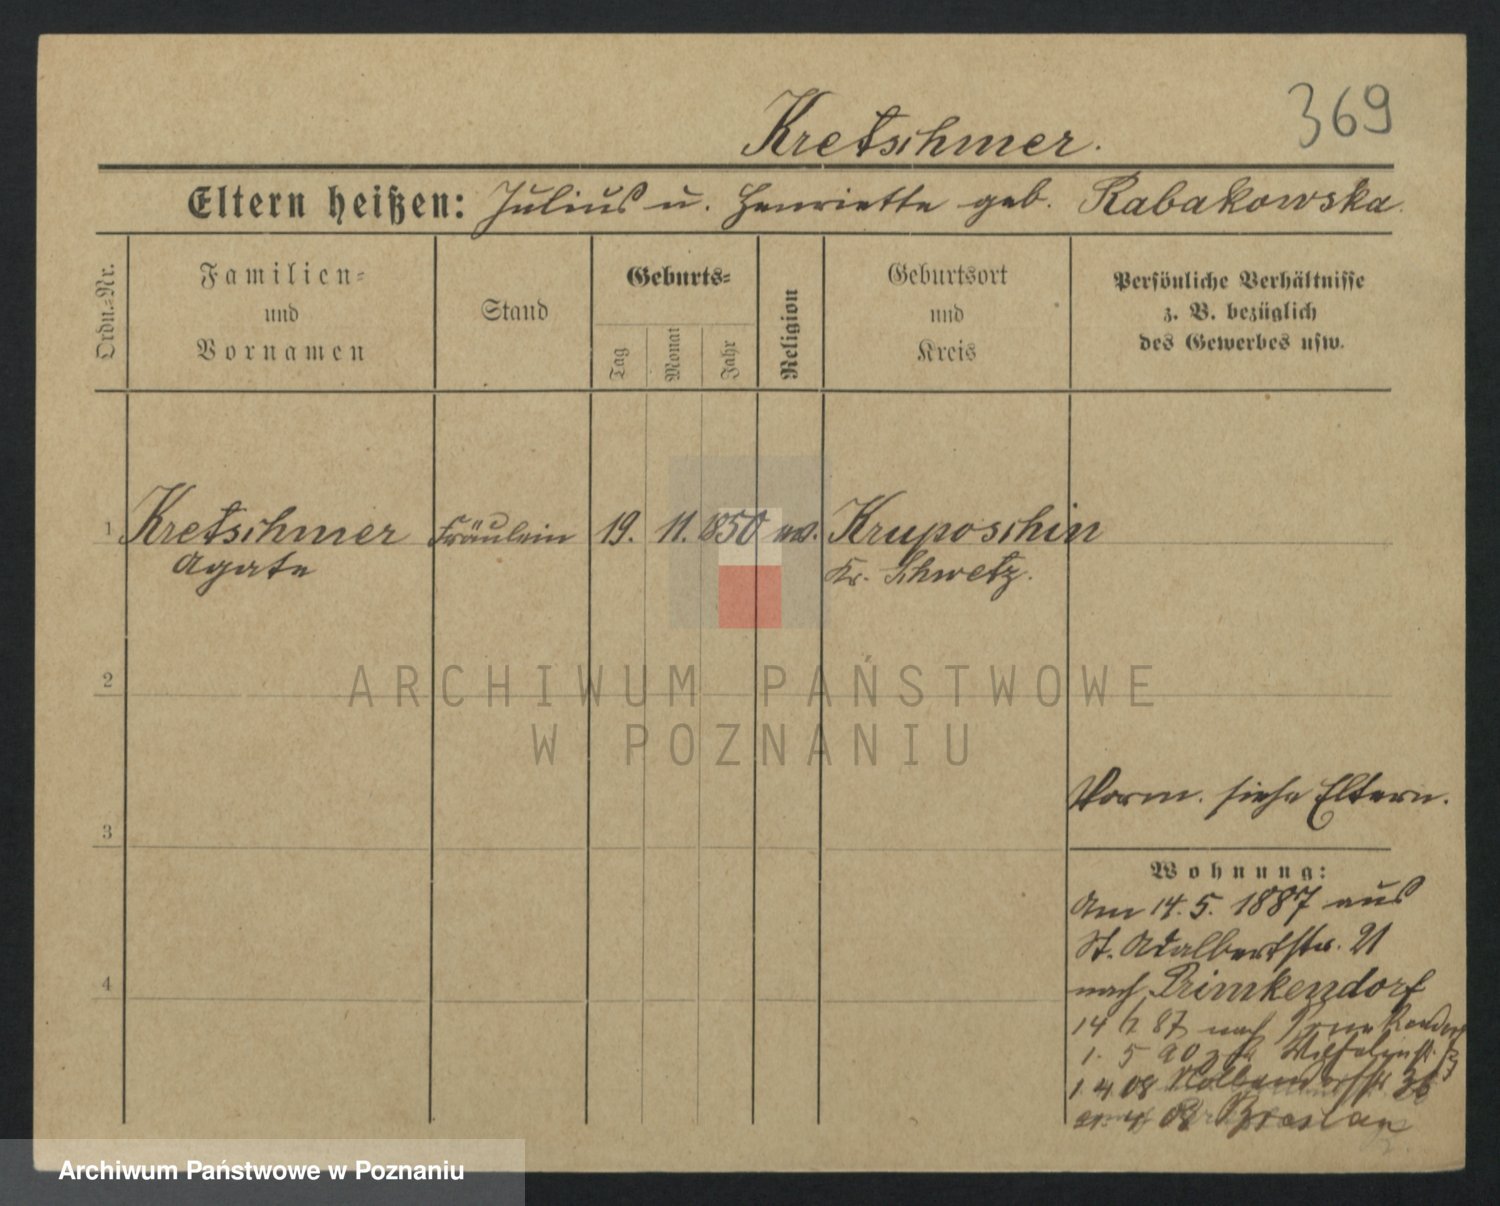 369
Kretschmer.
Eltern heißen: Julius u. Henriette geb. Rabakowska.
Ordn.-Nr.
Familien-
und
Vornamen
Stand
Geburts-
Tag
Monat
Jahr
Religion
Geburtsort
und
Kreis
Persönliche Verhältnisse
z. B. bezüglich
des Gewerbes usw.
1 Kretschmer Fräulein 19. 11. 1850 ev. Kruposchin
Agate Kr. Schwetz.
2
ARCHIWUM PAŃSTWOWE
W POZNANIU
Vorm. siehe Eltern.
3
Wohnung:
Am 14. 5. 1887 aus
St. Adalbertstr. 21
nach Primkendorf
4
14 87 nach
1. 5 90
1. 4. 08 36
08 Breslau
Archiwum Państwowe w Poznaniu